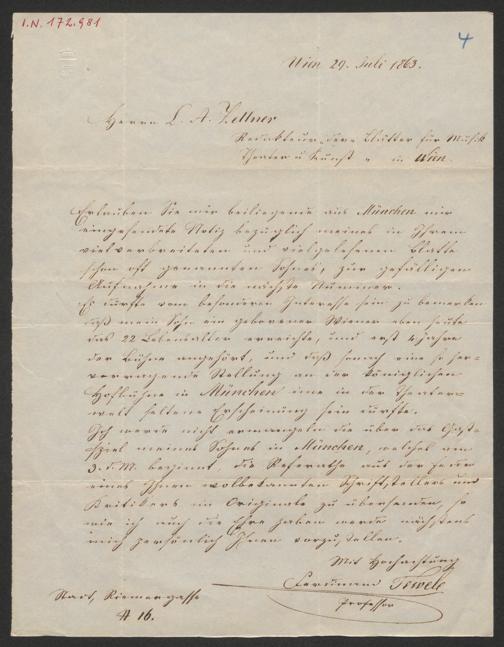 I.N. 172.981
4
Wien 29. Juli 1863.
Herrn L. A. Zellner
Redakteur der „Blätter für Musik
Theater u Kunst“ in Wien.
Erlauben Sie mir beiliegende aus München mir
eingesendete Notiz bezüglich meines in Ihrem
vielverbreiteten und vielgelesenen Blatte
schon oft genannten Sohnes, zur gefälligen
Aufnahme in die nächste Nummer.
Es dürfte vom besonderen Interesse sein zu bemerken
daß mein Sohn ein geborener Wiener eben heute
das 22 Lebensalter erreichte, und erst 4 Jahre
der Bühne angehört, und daß sonach eine so her-
vorragende Stellung an der königlichen
Hofbühne in München eine in der Theater-
welt seltene Erscheinung sein dürfte.
Ich werde nicht ermangeln die über das Gast-
spiel meines Sohnes in München, welches am
3. d. M. beginnt, die Referathe aus der Feder
eines Ihnen wolbekannten Schriftstellers und
Kritikers im Originale zu übersenden, so
wie ich auch die Ehre haben werde nächstens
mich persönlich Ihnen vorzustellen.
Mit Hochachtung
Ferdinand Tewele
Professor
Stadt, Riemergasse
# 16.